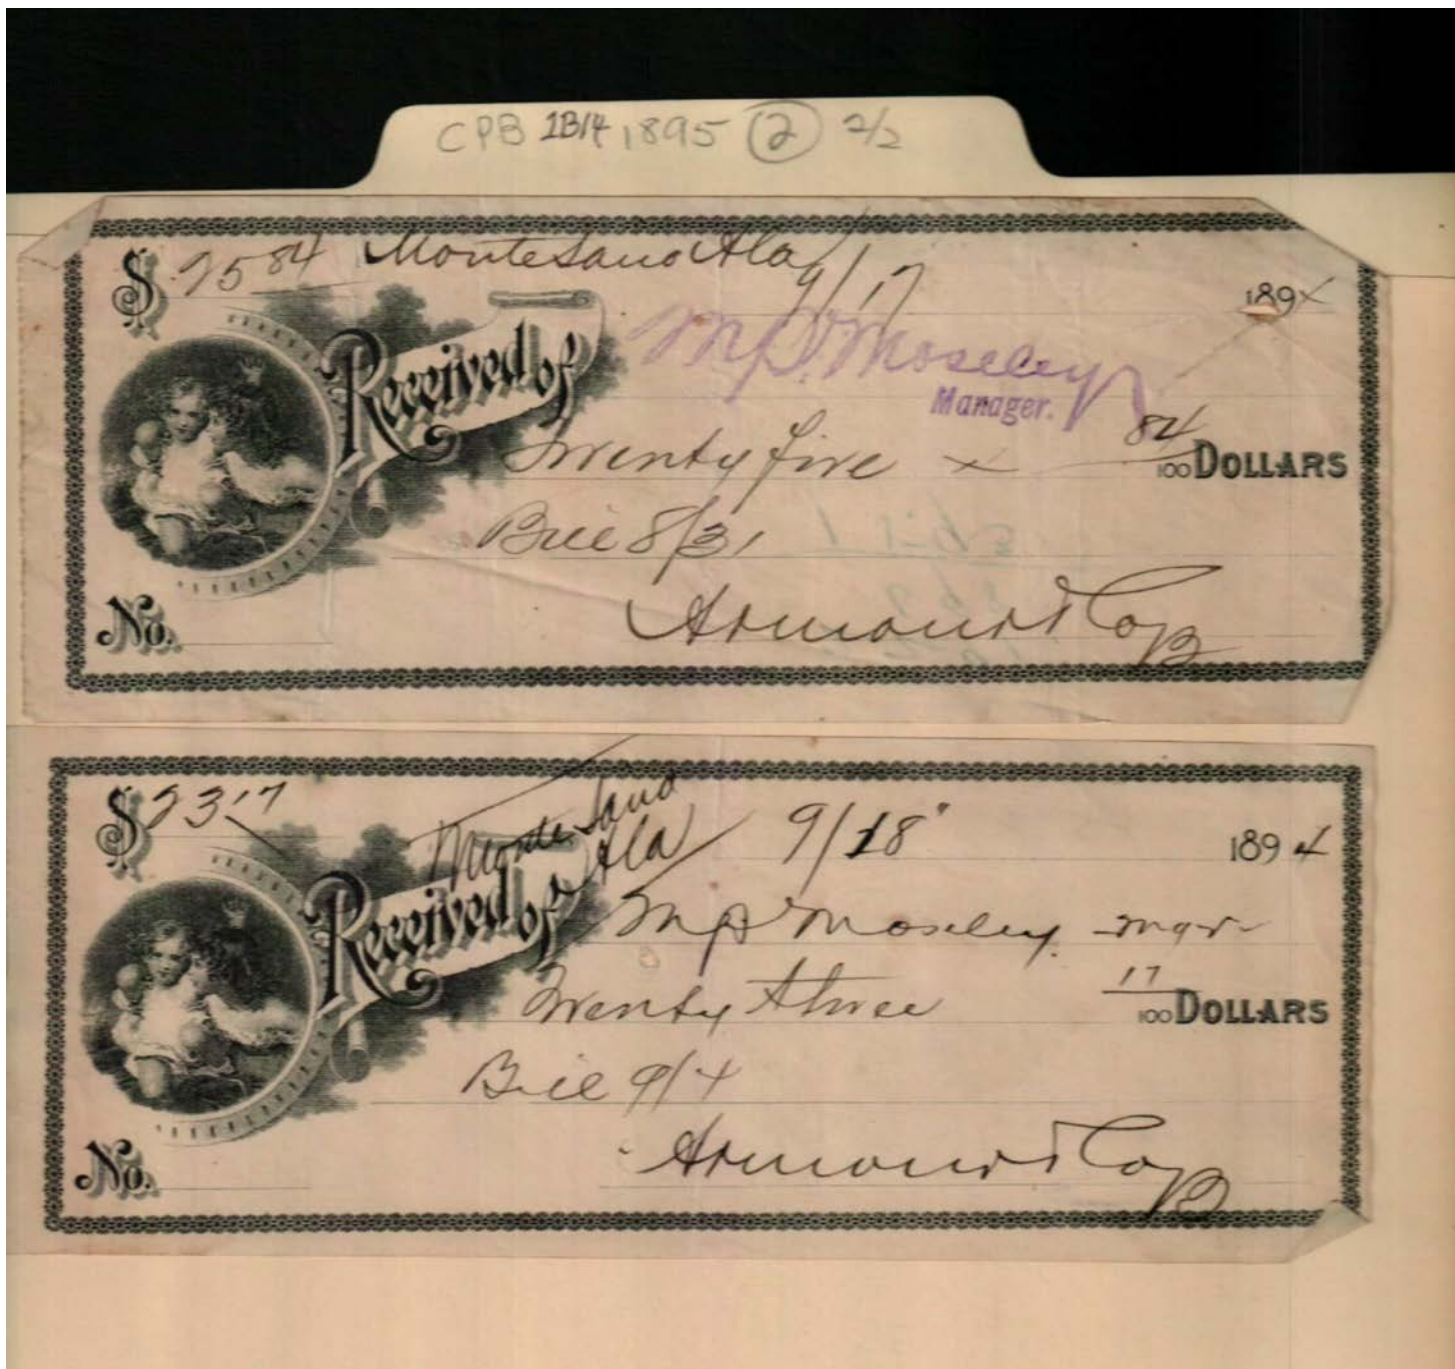 CPB 1B14 1895 2 2/2
$ 25 84 Monte Sano Ala 9/17 1894
Received of M. P. Moseley
Manager.
Twenty five x 84/100 DOLLARS
Bill 8/31
& Co
No.
$ 23 17 Monte Sano Ala 9/18" 1894
Received of M P Moseley. mgr
Twenty three 17/100 DOLLARS
Bill 9/4
& Co
No.